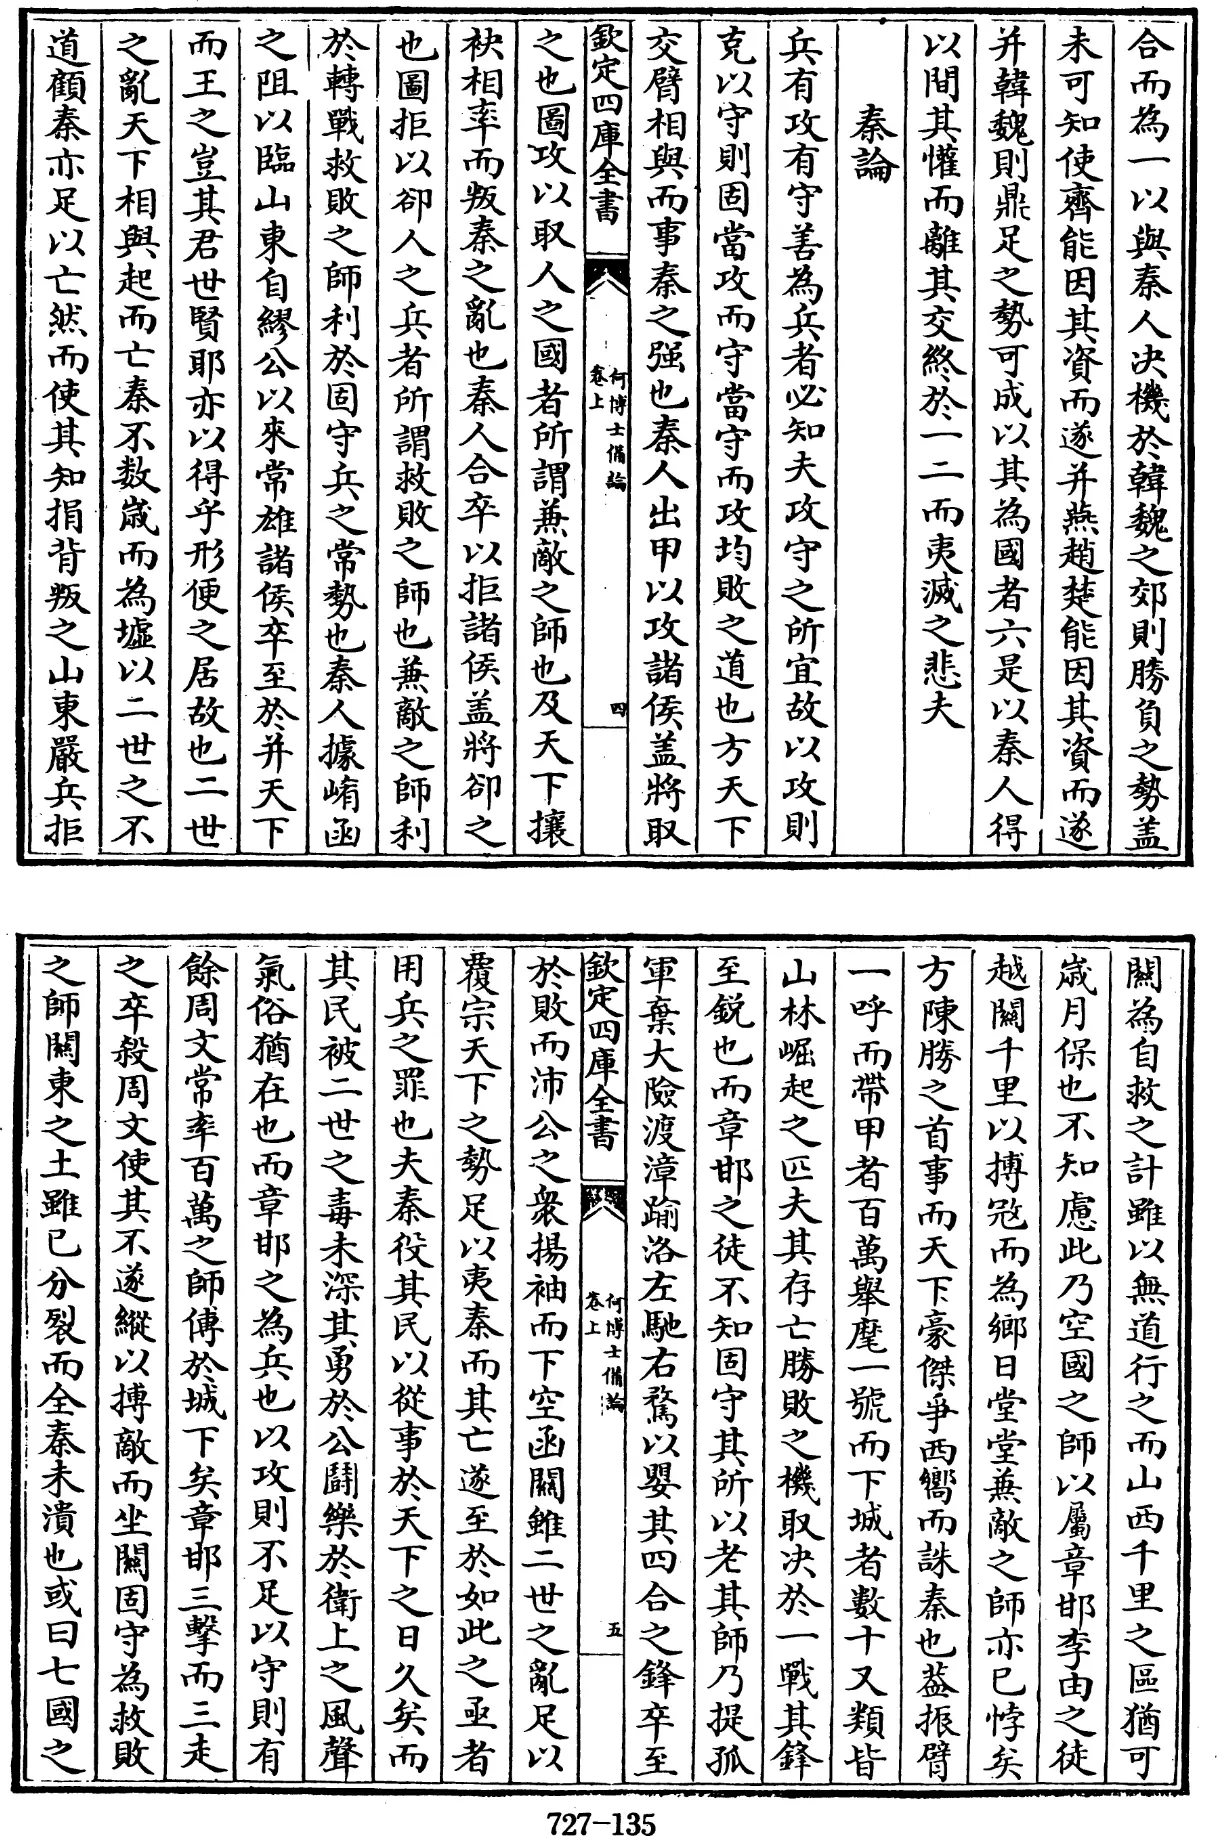 合而為一以與秦人决機於韓魏之郊則勝負之勢盖
未可知使齊能因其資而遂并燕趙楚能因其資而遂
并韓魏則鼎足之勢可成以其為國者六是以秦人得
以間其懽而離其交終於一二而夷滅之悲夫
秦論
兵有攻有守善為兵者必知夫攻守之所宜故以攻則
克以守則固當攻而守當守而攻均敗之道也方天下
交臂相與而事秦之强也秦人出甲以攻諸侯盖將取
欽定四庫全書
何博士備論
卷上
四
之也圖攻以取人之國者所謂兼敵之師也及天下攘
袂相率而叛秦之亂也秦人合卒以拒諸侯盖將卻之
也圖拒以卻人之兵者所謂救敗之師也兼敵之師利
於轉戰救敗之師利於固守兵之常勢也秦人據崤函
之阻以臨山東自繆公以來常雄諸侯卒至於并天下
而王之豈其君世賢耶亦以得乎形便之居故也二世
之亂天下相與起而亡秦不数嵗而為墟以二世之不
道顧秦亦足以亡然而使其知捐背叛之山東嚴兵拒
關為自救之計雖以無道行之而山西千里之區猶可
嵗月保也不知慮此乃空國之師以屬章邯李由之徒
越關千里以搏冦而為鄉日堂堂兼敵之師亦已悖矣
方陳勝之首事而天下豪傑爭西嚮而誅秦也葢振臂
一呼而帶甲者百萬舉麾一號而下城者數十又類皆
山林崛起之匹夫其存亡勝敗之機取决於一戰其鋒
至銳也而章邯之徒不知固守其所以老其師乃提孤
軍棄大險渡漳踰洛左馳右騖以嬰其四合之鋒卒至
欽定四庫全書
何博士備論
卷上
五
於敗而沛公之衆揚袖而下空函關雖二世之亂足以
覆宗天下之勢足以夷秦而其亡遂至於如此之亟者
用兵之罪也夫秦役其民以從事於天下之日久矣而
其民被二世之毒未深其勇於公鬬樂於衛上之風聲
氣俗猶在也而章邯之為兵也以攻則不足以守則有
餘周文常率百萬之師傅於城下矣章邯三擊而三走
之卒殺周文使其不遂縱以搏敵而坐關固守為救敗
之師關東之土雖已分裂而全秦未潰也或曰七國之
727-135